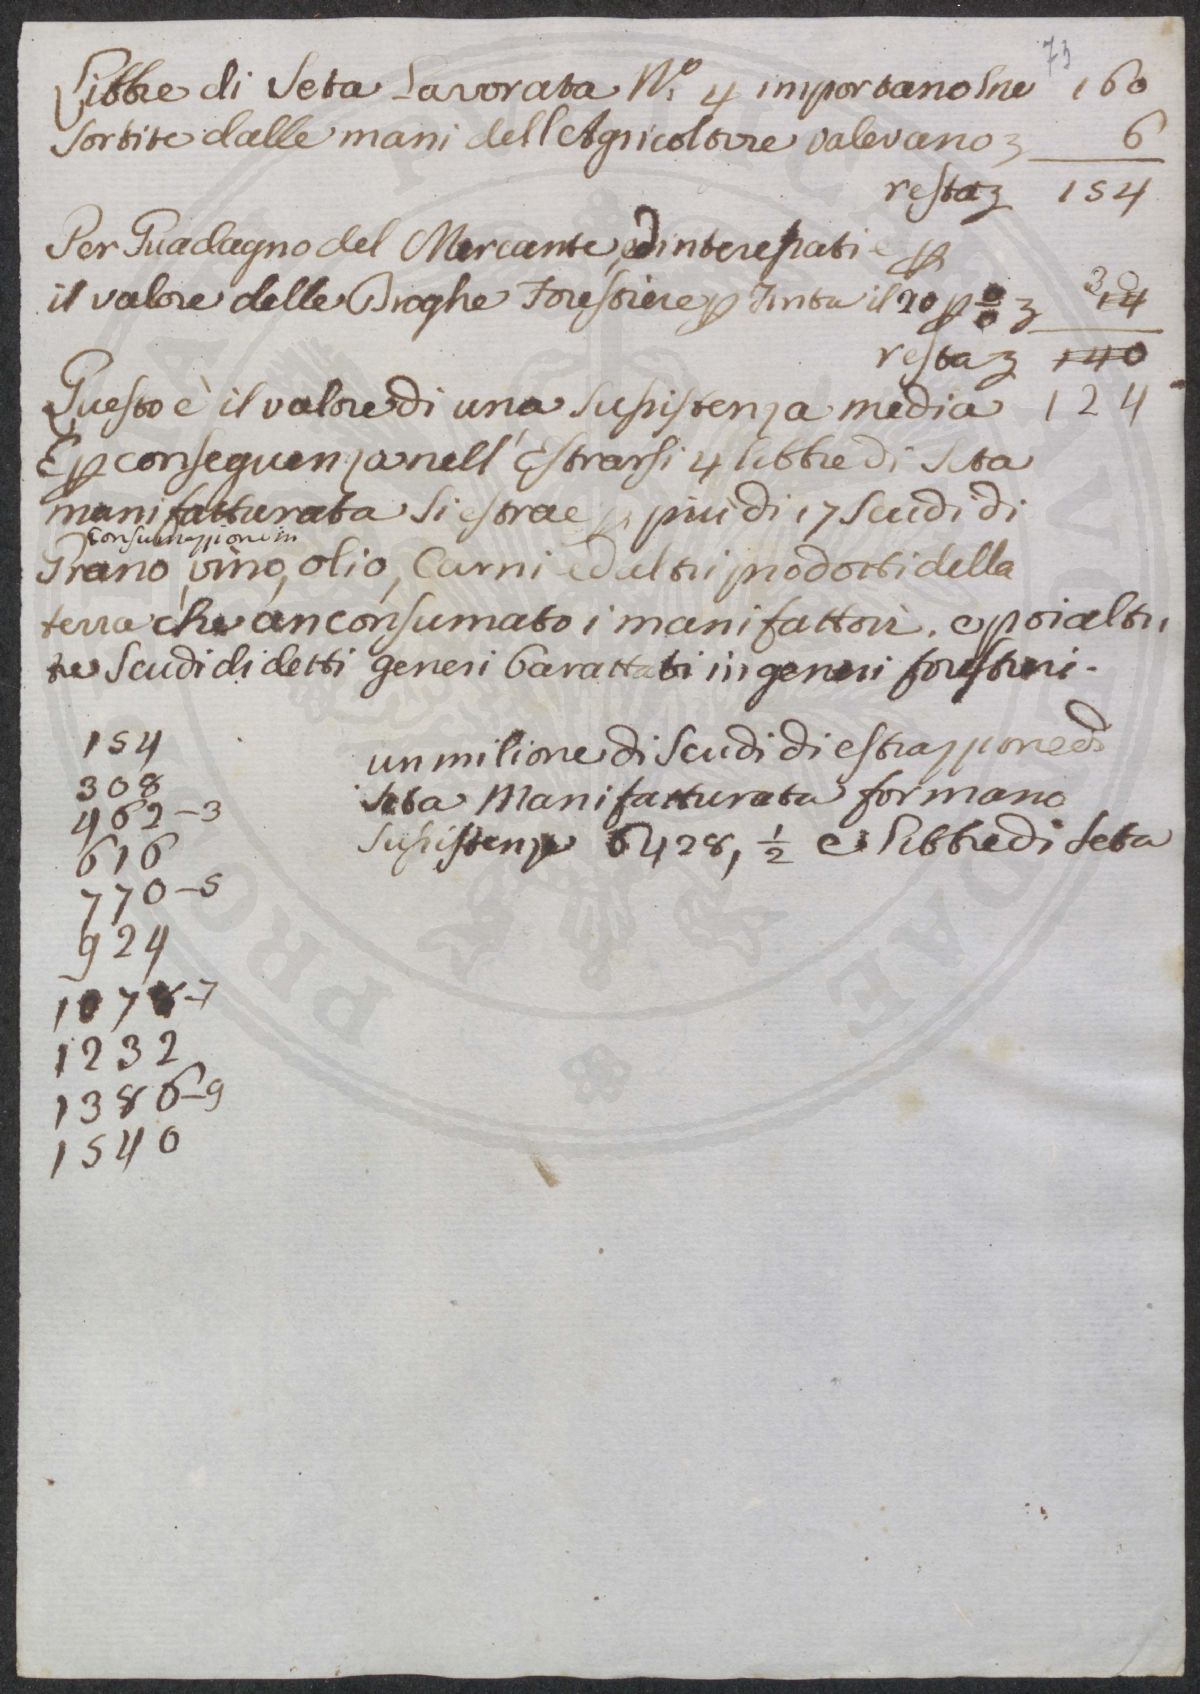 73
Libbre di Seta Lavorata N.º 4 importano Lire 160
Sortite dalle mani dell'Agricoltore valevano 6
resta 154
Per Guadagno del Mercante, ed interessati e p
il valore delle Droghe Forestiere p Tinta il 20 p 0/0 30 14
resta 140
Questo è il valore di una Sussistenza media 124
E p conseguenza nell'Estrarsi 4 libbre di Seta
manifatturata si estrae più di 17 Scudi di
consumazzione in
Grano, vino, olio, Carni ed altri prodotti della
terra che an consumato i manifattori. e poi altri
tre Scudi di detti generi barattati in generi forestieri.
154
308
462-3
616
770-5
924
1078-7
1232
1386-9
1540
un milione di Scudi di estrazzione di
seta Manifatturata formano
Sussistenze 6428, 1/2 e Libbre di Seta